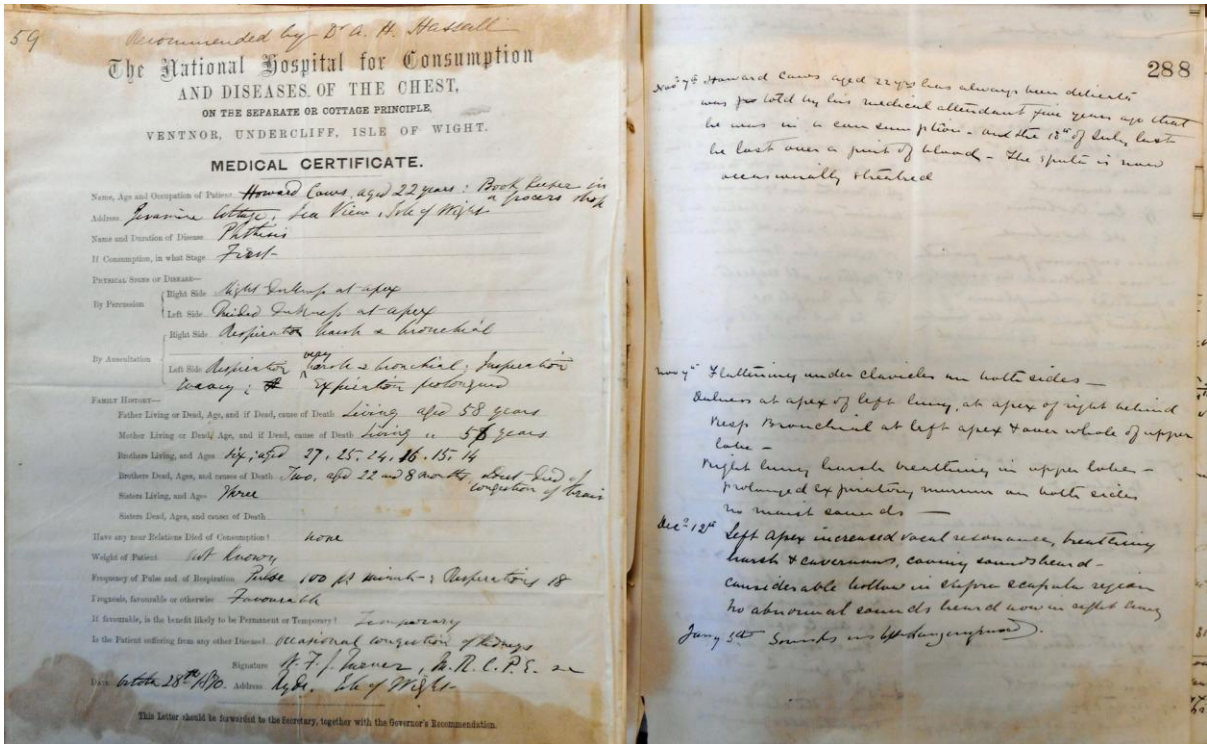 59
Recommended by Dr A. H. Hassall
The National Hospital for Consumption
AND DISEASES OF THE CHEST,
ON THE SEPARATE OR COTTAGE PRINCIPLE,
VENTNOR, UNDERCLIFF, ISLE OF WIGHT.
MEDICAL CERTIFICATE.
Name, Age and Occupation of Patient Howard Caws, aged 22 years : Book keeper in
a grocers shop
Address Cottage, Sea View, Isle of Wight
Name and Duration of Disease Phthisis
If Consumption, in what Stage First
PHYSICAL SIGNS OF DISEASE—
By Percussion
Right Side Slight Dulness at apex
Left Side Decided Dulness at apex
By Auscultation
Right Side Respiration harsh & bronchial
Left Side Respiration very harsh & bronchial; Inspiration
wavy; Expiration prolonged
FAMILY HISTORY—
Father Living or Dead, Age, and if Dead, cause of Death Living aged 58 years
Mother Living or Dead, Age, and if Dead, cause of Death Living " years
Brothers Living, and Ages Six; aged 27. 25. 24. 16. 15. 14
Brothers Dead, Ages, and causes of Death Two, aged 22 and 8 months, died of
congestion of brain
Sisters Living, and Ages Three
Sisters Dead, Ages, and causes of Death
Have any near Relations Died of Consumption? none
Weight of Patient not known
Frequency of Pulse and of Respiration Pulse 100 pr minute; Respirations 18
Prognosis, favourable or otherwise Favourable
If favourable, is the benefit likely to be Permanent or Temporary? Temporary
Is the Patient suffering from any other Disease? occasional congestion of kidneys
Signature Turner, M.R.C.P.E.
Date October 28th 1870. Address Ryde, Isle of Wight
This Letter should be forwarded to the Secretary, together with the Governor's Recommendation.
288
Novr 7th Howard Caws aged 22 yrs has always been delicate
was told by his medical attendant five years ago that
he was in a consumption - and the 12th of July last
he lost over a pint of blood - The sputa is now
occasionally streaked
Novr 7th Flattening under clavicles on both sides —
Dulness at apex of left lung, at apex of right behind
Resp Bronchial at left apex & over whole of upper
lobe -
Right lung harsh breathing in upper lobe -
prolonged expiratory murmur on both sides
no moist sounds —
Decr 12th Left apex increased vocal resonance, breathing
harsh & cavernous, sounds heard -
considerable hollow in supra scapular region
No abnormal sounds heard now in right lung
Jany 5th Sounds in